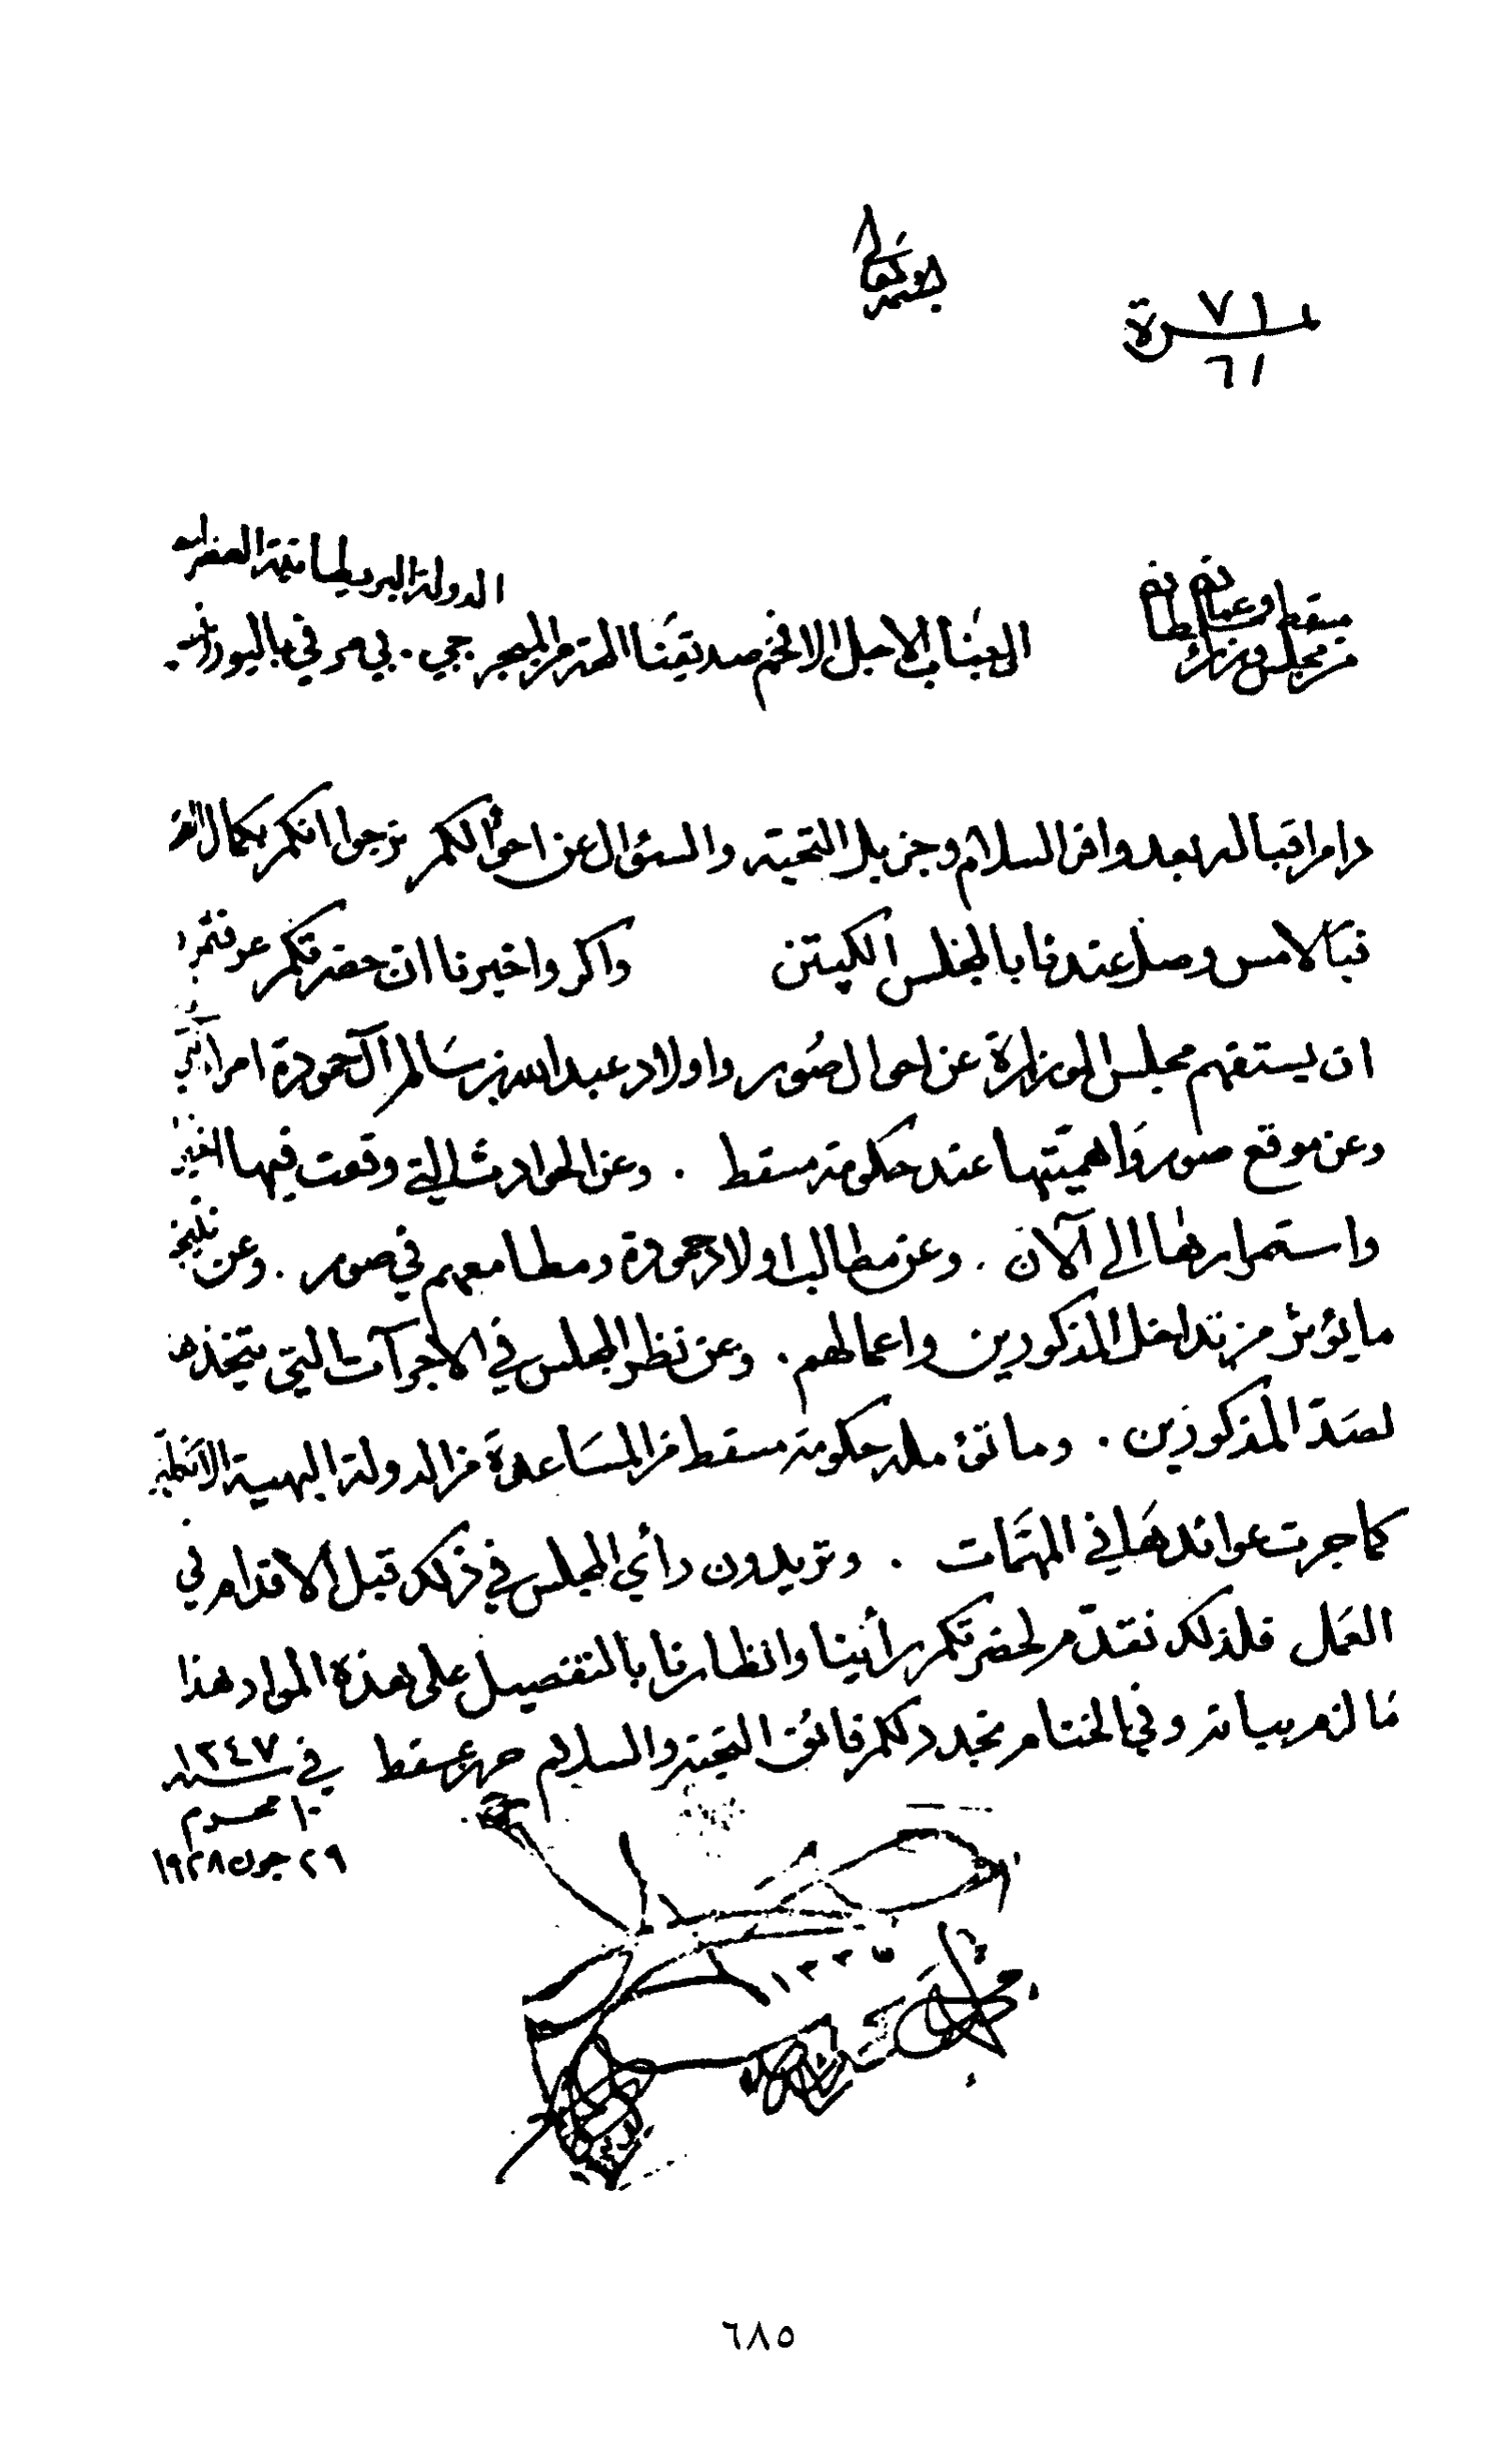 نمرة ٧١
٦١
الدولة البريطانية العظمى
من مجلس وزراء سلطانة مسقط وعمان
الى جناب الاجل الافخم صديقنا المحترم الميجر جي . بي مرفي باليوز
دام اقباله بعد وافر السلام وجزيل التحية والسؤال عن احوالكم نرجوا انكم بكمال
فبالامس وصل عندنا بالمجلس الكپتن واكر واخبرنا ان حضرتكم
ان يستفهم مجلس الوزارة عن احوال صور واولاد عبدالله بن سالم آل حمودة امراء
وعن موقع صور واهميتها عند حكومة مسقط . وعن الحوادث التي وقعت فيها
واستمرارها الى الآن . وعن مطالب اولاد حمودة ومطامعهم في صور . وعن
ما يؤثر من تداخل المذكورين واعمالهم . وعن نظر المجلس في الاجرآت التي تتخذ
لصد المذكورين . وما تؤمله حكومة مسقط من المساعدة من الدولة البهية
كما جرت عوائدها في المهمات . وتريدون رأي المجلس في ذلك قبل الاقدام في
العمل فلذلك نقدم لحضرتكم رأينا وانظارنا بالتفصيل على هذه المواد هذا
ما لزم بيانه وفي الختام نجدد لكم فائق التحية والسلام حرر بمسقط في سنة ١٣٤٧
١٠ محرم
٢٩ جون ١٩٢٨
٦٨٥